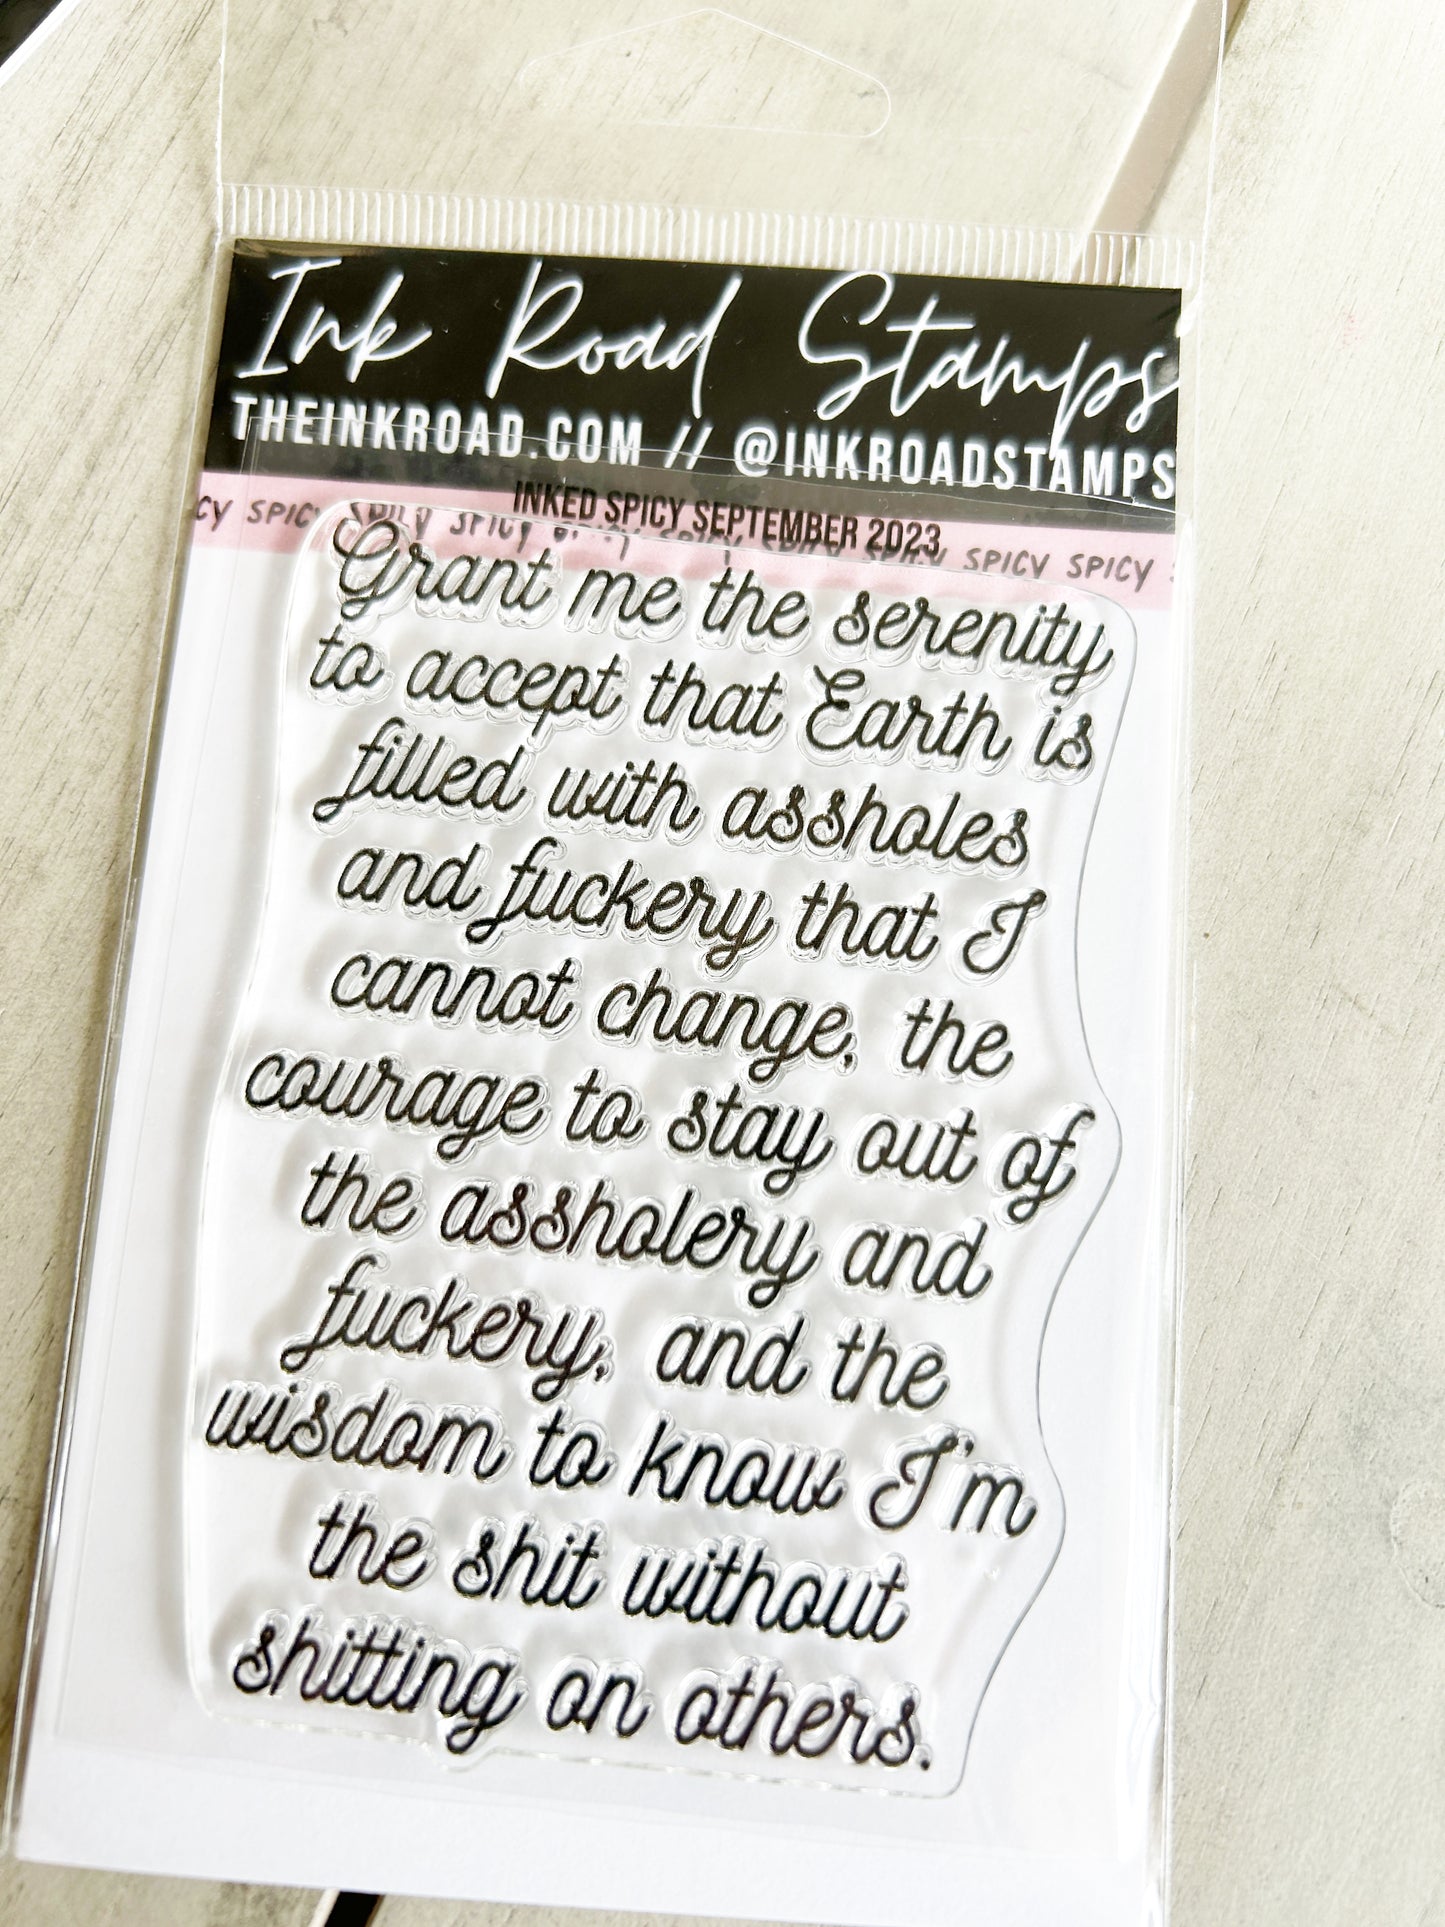 Ink Road Stamps
THEINKROAD.COM // @INKROADSTAMPS
INKED SPICY SEPTEMBER 2023
CY SPICY SPICY SPICY SPICY SPICY SPICY SPICY SPICY
Grant me the serenity
to accept that Earth is
filled with assholes
and fuckery that I
cannot change, the
courage to stay out of
the assholery and
fuckery, and the
wisdom to know I'm
the shit without
shitting on others.